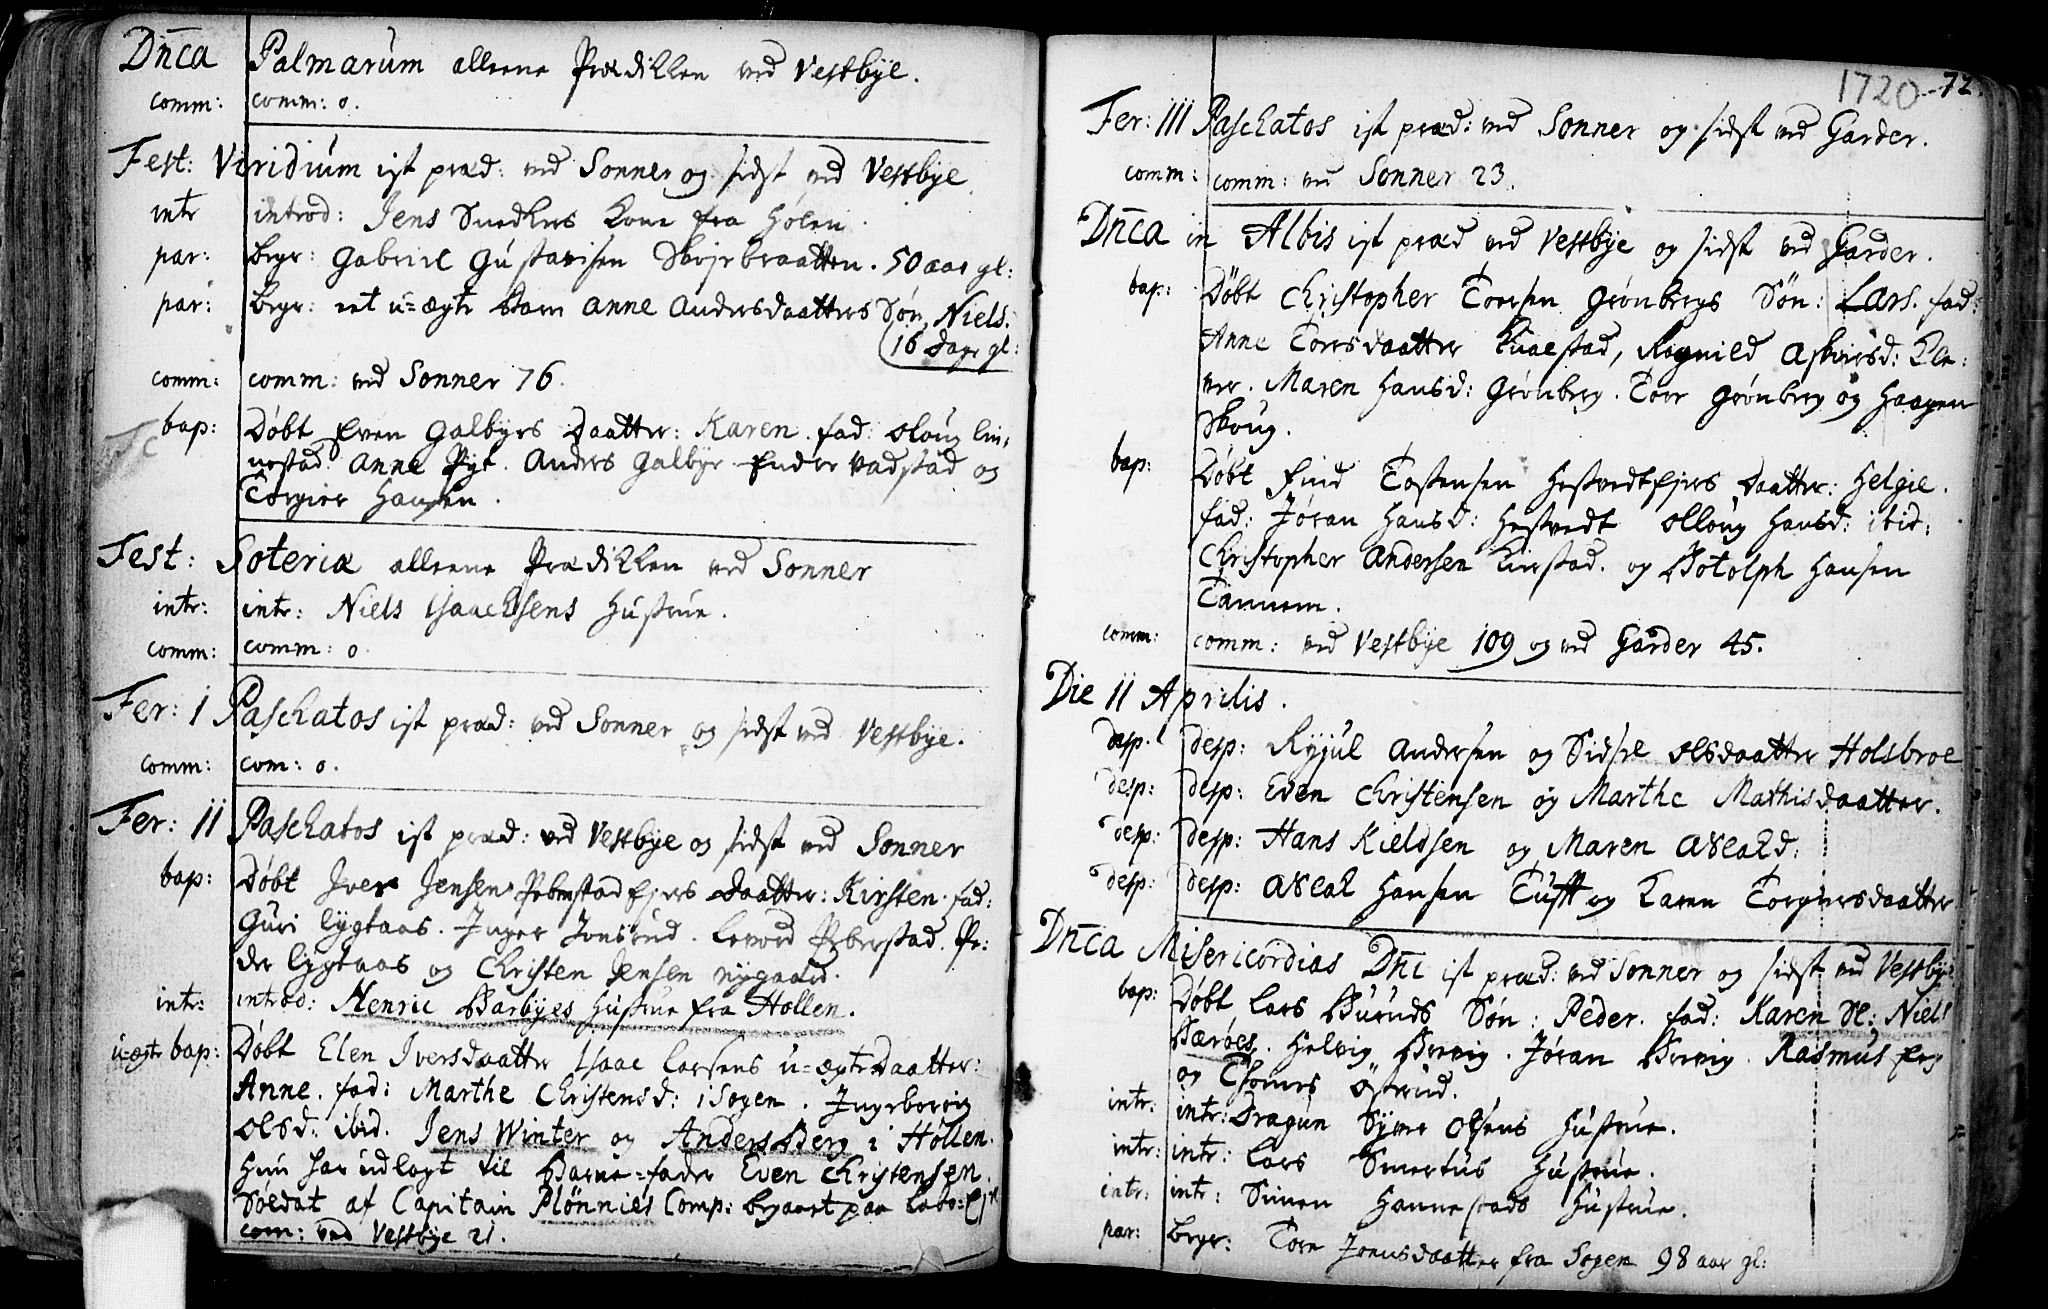 Dn̄ca Palmarum alleene Prædikken ved Vestbye.
comm: comm: 0.
Fest: Viridium ist præd: ved Sonner og sidst ved Vestbye
intr introd: Jens Snedkers Kone fra Hølen.
par: begr: Gabriel Gustavisen 50 aar gl:
par: begr: et u=ægte barn Anne Andersdaatters Søn Niels.
16 dage gl:
comm: comm: ved Sonner 76.
bap: Døbt Even Galbyes Daatter: Karen. fad: oloug lin,
nestad. Anne Pige. Anders Galbye Endre Vadstad og
Torgier Hansen.
Fest: Soteriæ alleene Prædikken ved Sonner
intr: intr: Niels Isaachsens Hustrue.
comm: comm: 0.
Fer: I Paschatos ist præd: ved Sonner og sidst ved Vestbye.
comm: com: 0.
Fer: II Paschatos ist præd: ved Vestbye og sidst ved Sonner
bap: Døbt Iver Jensens Daatter: Kirsten. fad:
Guri lygtaas. Inger Jonsrud. Levord Peberstad. Pe:
der lygtaas og Christen Jensen nygaard.
intr: introd: Henric Barbyes Hustrue fra Hollen.
u=ægte bap: Døbt Elen Iversdaatter Isaac Larsens u=ægte Daatter:
Anne. fad: Marthe Christensd: i Sogen. Ingerborrig
olsd. ibid. Jens Winter og Anders Berg i Hollen.
Hun har udlagt til Barne=fader Even Christensen.
Soldat af Capitain Plønnies Comp:
com: ved Vestbye 21.
1720 72.
Fer: III Paschatos ist præd: ved Sonner og sidst ved Garder.
comm: comm: ved Sonner 23.
Dn̄ca in Albis ist præd ved Vestbye og sidst ved Garder.
bap: Døbt Christopher Toersen Grønbergs Søn: Lars. fad:
Anne Toersdaatter Huaestad, Ragnild Asbiørsd: Kle:
ver. Maren Hansd: Grønberg. Toer Grønberg og Haagen
Skoug.
bap: Døbt Find Tostensen Daatter: Helgie.
fad: Jøran Hansd: Hestvedt olloug Hansd: ibid:
Christopher Andersen Kirstad. og Botolph Hansen
Tannem.
comm: comm: ved Vestbye 109 og ved Garder 45.
Die 11 Aprilis.
desp. desp: Ryjul Andersen og Sidsel olsdaatter Holsbroe
desp: desp: Even Christensen og Marthe Mathisdaatter.
desp: desp: Hans Kieldsen og Maren d:
desp: desp: Hansen Tuft og Karen Torgiersdaatter
Dn̄ca Misericordias Dn̄i ist præd: ved Sonner og sidst ved Vestbye
bap: Døbt Lars Buruds Søn: Peder. fad: Karen Sl: Niels
Bærøes. Helvig Brevig. Jøran Brevig. Rasmus
og Thomes Østrud.
intr: intr: Dragun Syver Olsens Hustrue.
intr: intr: Lars Hustrue.
intr: intr: Simen Hannestads Hustrue.
par: begr: Tore Joensdaatter fra Sogen 98 aar gl: